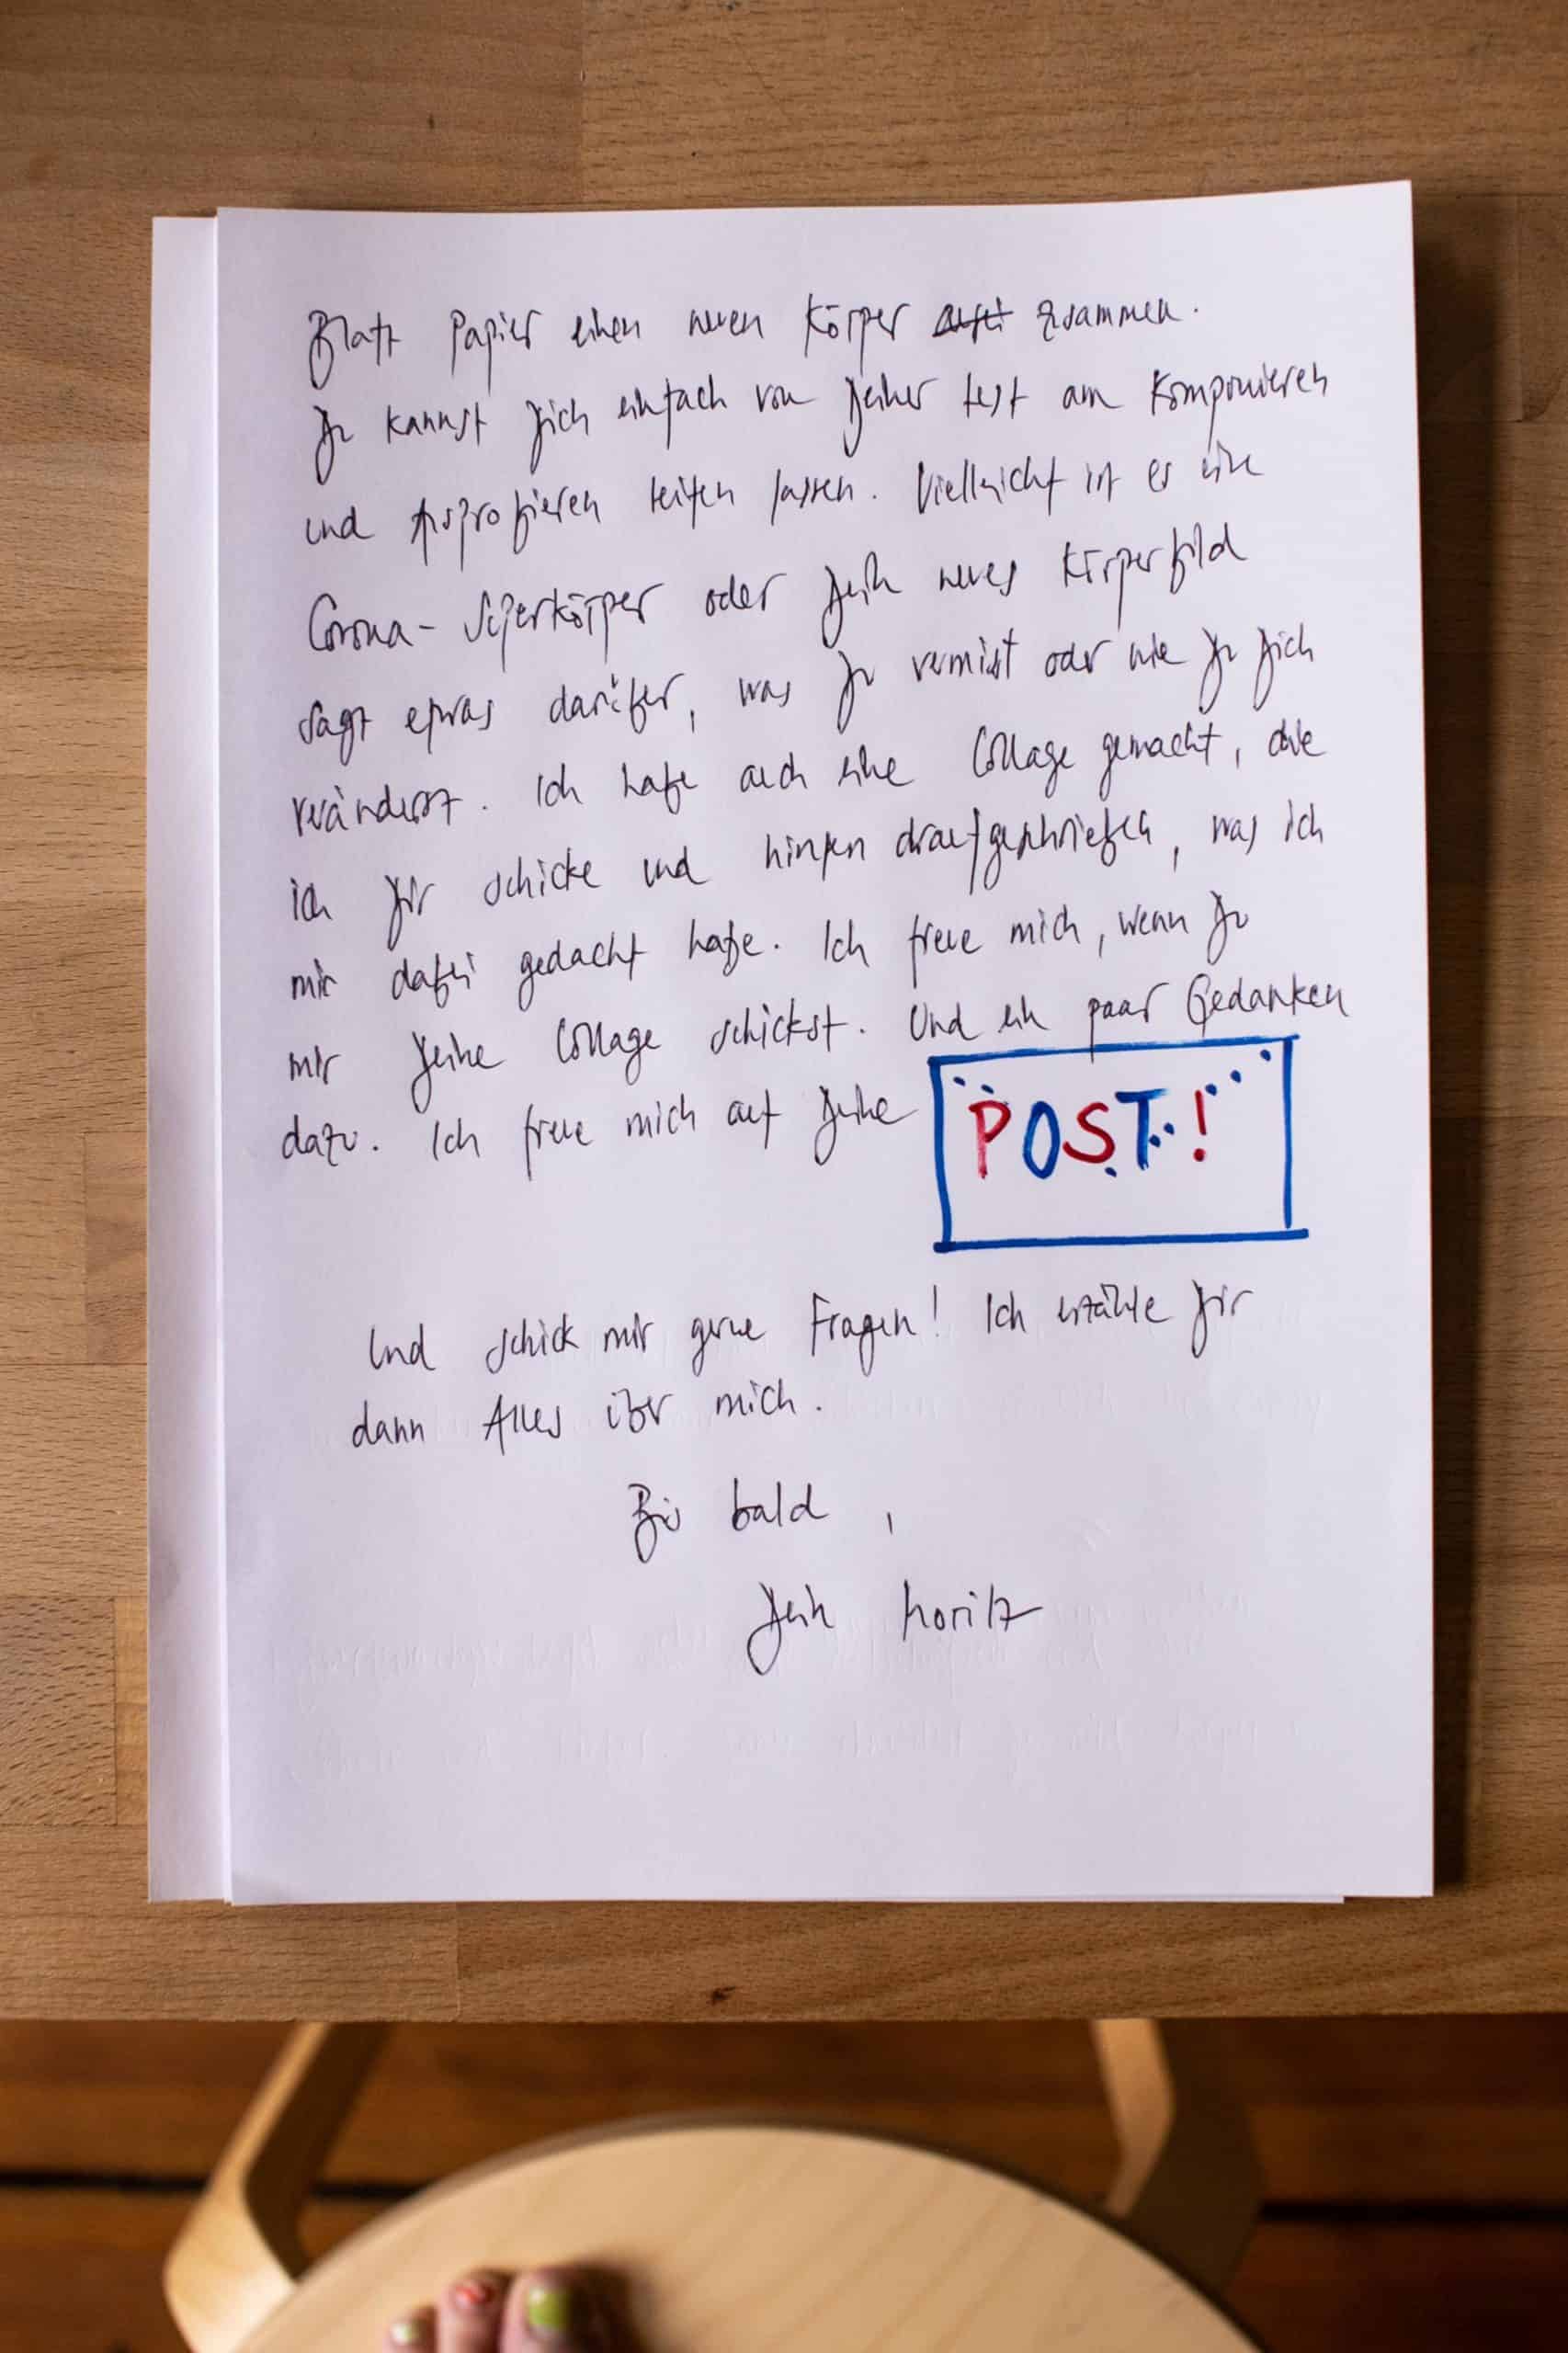 Blatt Papier einen neuen Körper zusammen.
Du kannst Dich einfach von Deiner Lust am Komponieren
und Ausprobieren leiten lassen. Vielleicht ist es ein
Corona-Superkörper oder Dein neues Körperbild
sagt etwas darüber, was Du vermisst oder wie Du Dich
veränderst. Ich habe auch eine Collage gemacht, die
ich Dir schicke und hinten draufgeschrieben, was ich
mir dabei gedacht habe. Ich freue mich, wenn Du
mir Deine Collage schickst. Und ein paar Gedanken
dazu. Ich freue mich auf Deine POST!
Und schick mir gerne Fragen! Ich erzähle Dir
dann Alles über mich.
Bis bald,
Dein Moritz